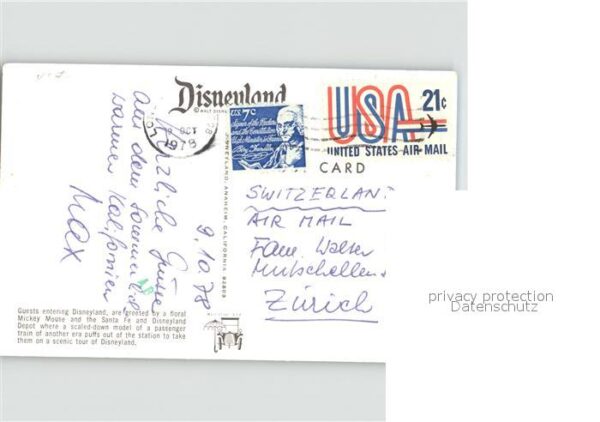 Disneyland
© WALT DISNEY
U.S. 7¢
Signer of the Declaration
and the Constitution
Ben Franklin
USA 21¢
UNITED STATES AIR MAIL
CARD
OCT
1978
DISNEYLAND, ANAHEIM, CALIFORNIA 92803
Herzliche Grüsse
aus dem sommerlich
warmen Kalifornien
Max
9.10.78
SWITZERLAN
AIR MAIL
Fam Walser
Mutschellen
Zürich
Guests entering Disneyland, are greeted by a floral
Mickey Mouse and the Santa Fe and Disneyland
Depot where a scaled-down model of a passenger
train of another era puffs out of the station to take
them on a scenic tour of Disneyland.
privacy protection
Datenschutz